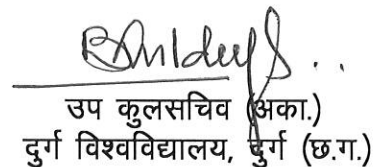 उप कुलसचिव (अका.)
दुर्ग विश्वविद्यालय, दुर्ग (छ.ग.)